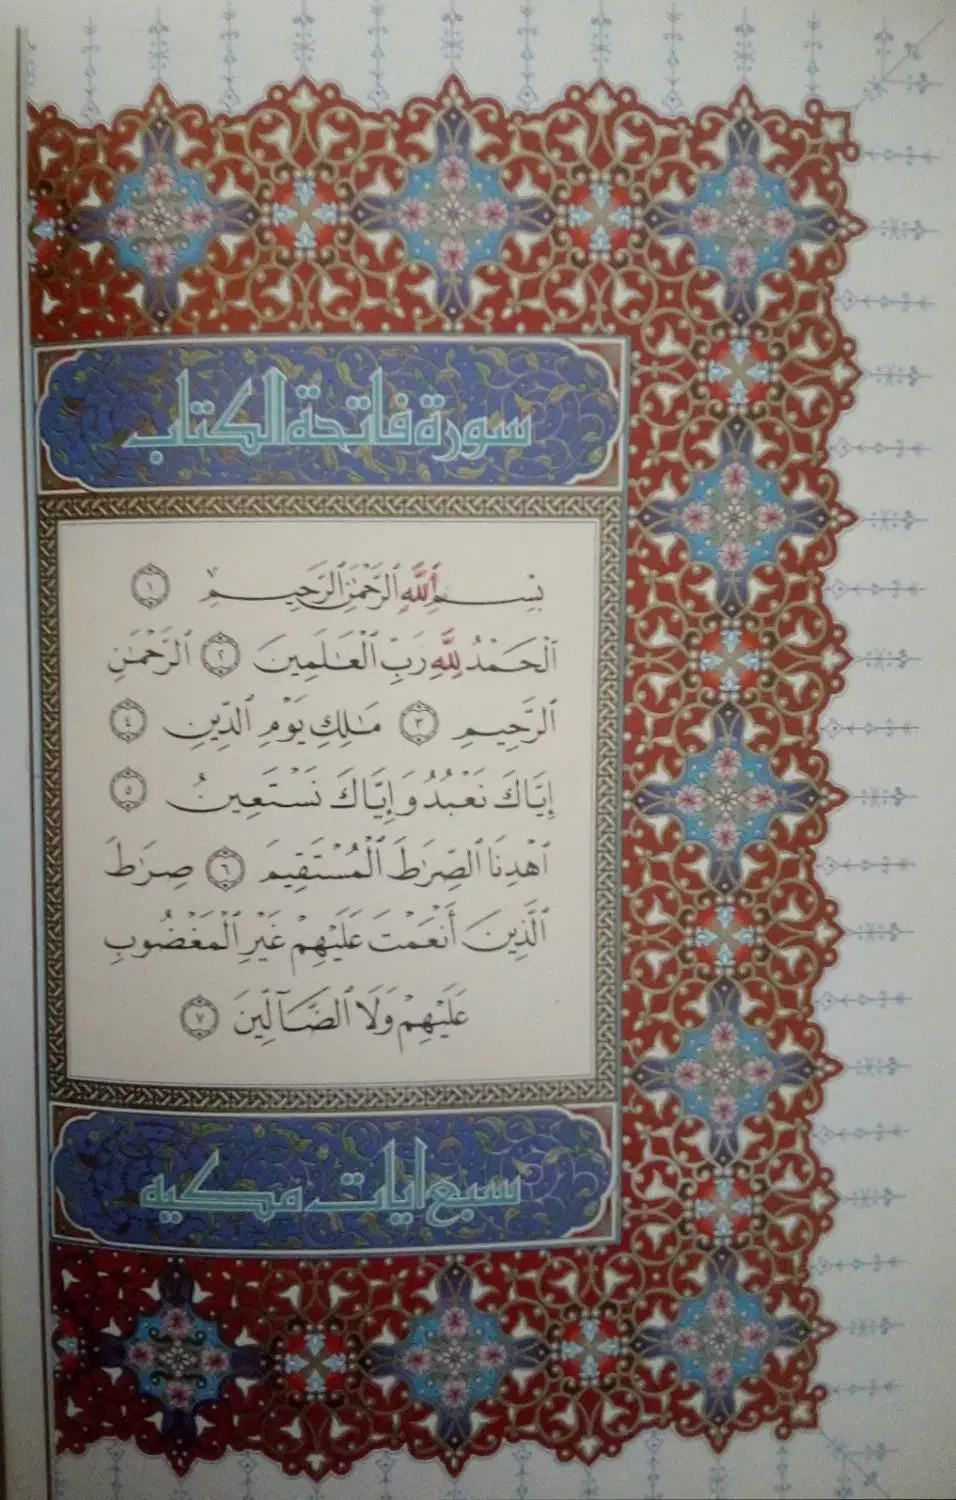 سورة فاتحة الكتاب
بِسْمِ ٱللَّهِ ٱلرَّحْمَٰنِ ٱلرَّحِيمِ ١
ٱلْحَمْدُ لِلَّهِ رَبِّ ٱلْعَٰلَمِينَ ٢ ٱلرَّحْمَٰنِ
ٱلرَّحِيمِ ٣ مَٰلِكِ يَوْمِ ٱلدِّينِ ٤
إِيَّاكَ نَعْبُدُ وَإِيَّاكَ نَسْتَعِينُ ٥
ٱهْدِنَا ٱلصِّرَٰطَ ٱلْمُسْتَقِيمَ ٦ صِرَٰطَ
ٱلَّذِينَ أَنْعَمْتَ عَلَيْهِمْ غَيْرِ ٱلْمَغْضُوبِ
عَلَيْهِمْ وَلَا ٱلضَّآلِّينَ ٧
سبع آيات مكيه